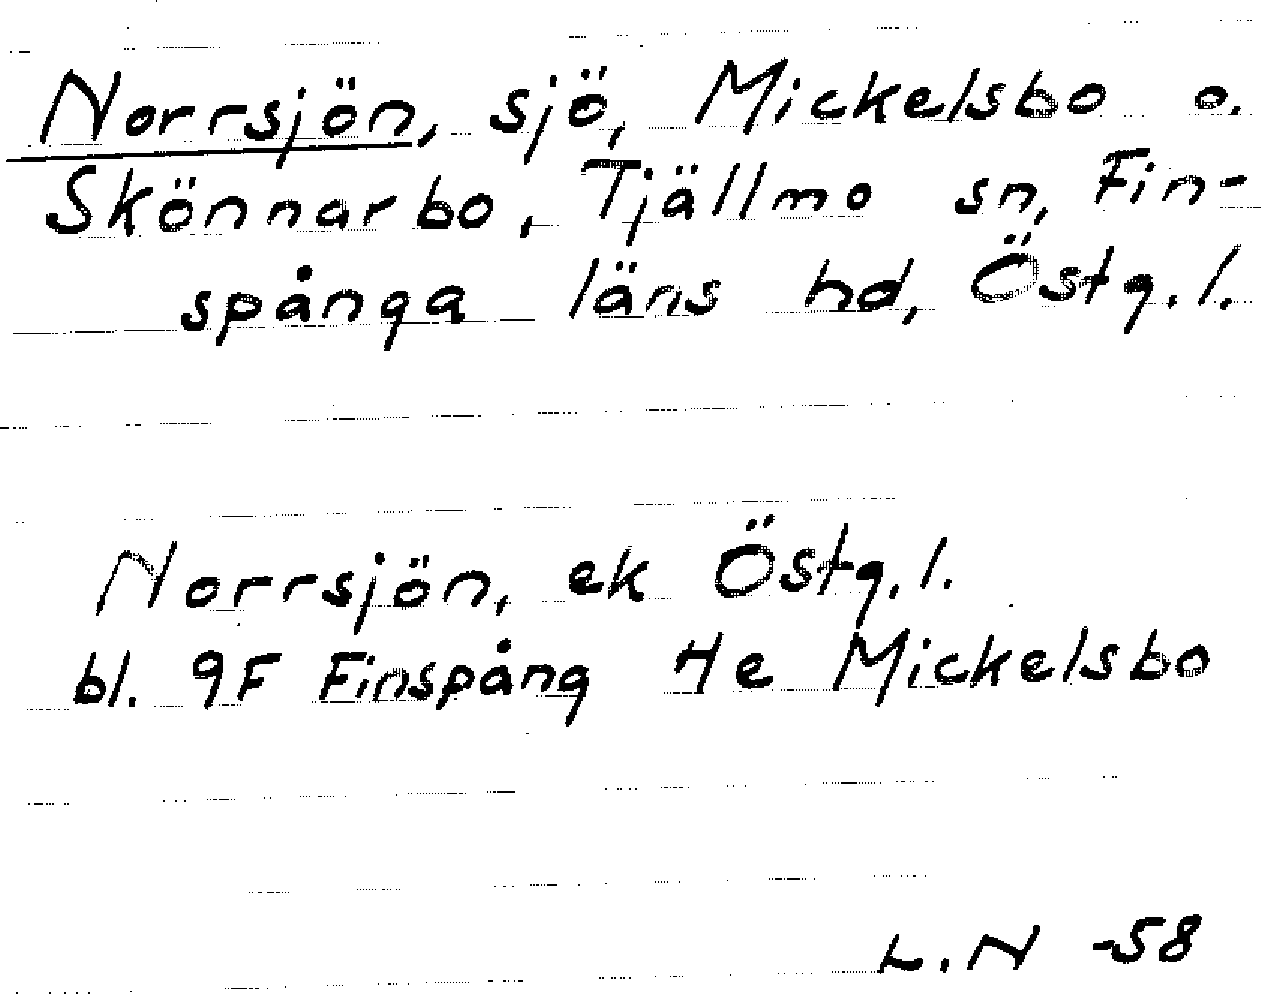 Norrsjön, sjö, Mickelsbo o.
Skönnarbo, Tjällmo sn, Fin-
spånga läns hd, Östg. l.
Norrsjön, ek Östg. l.
bl. 9F Finspång 4e Mickelsbo
L. N -58